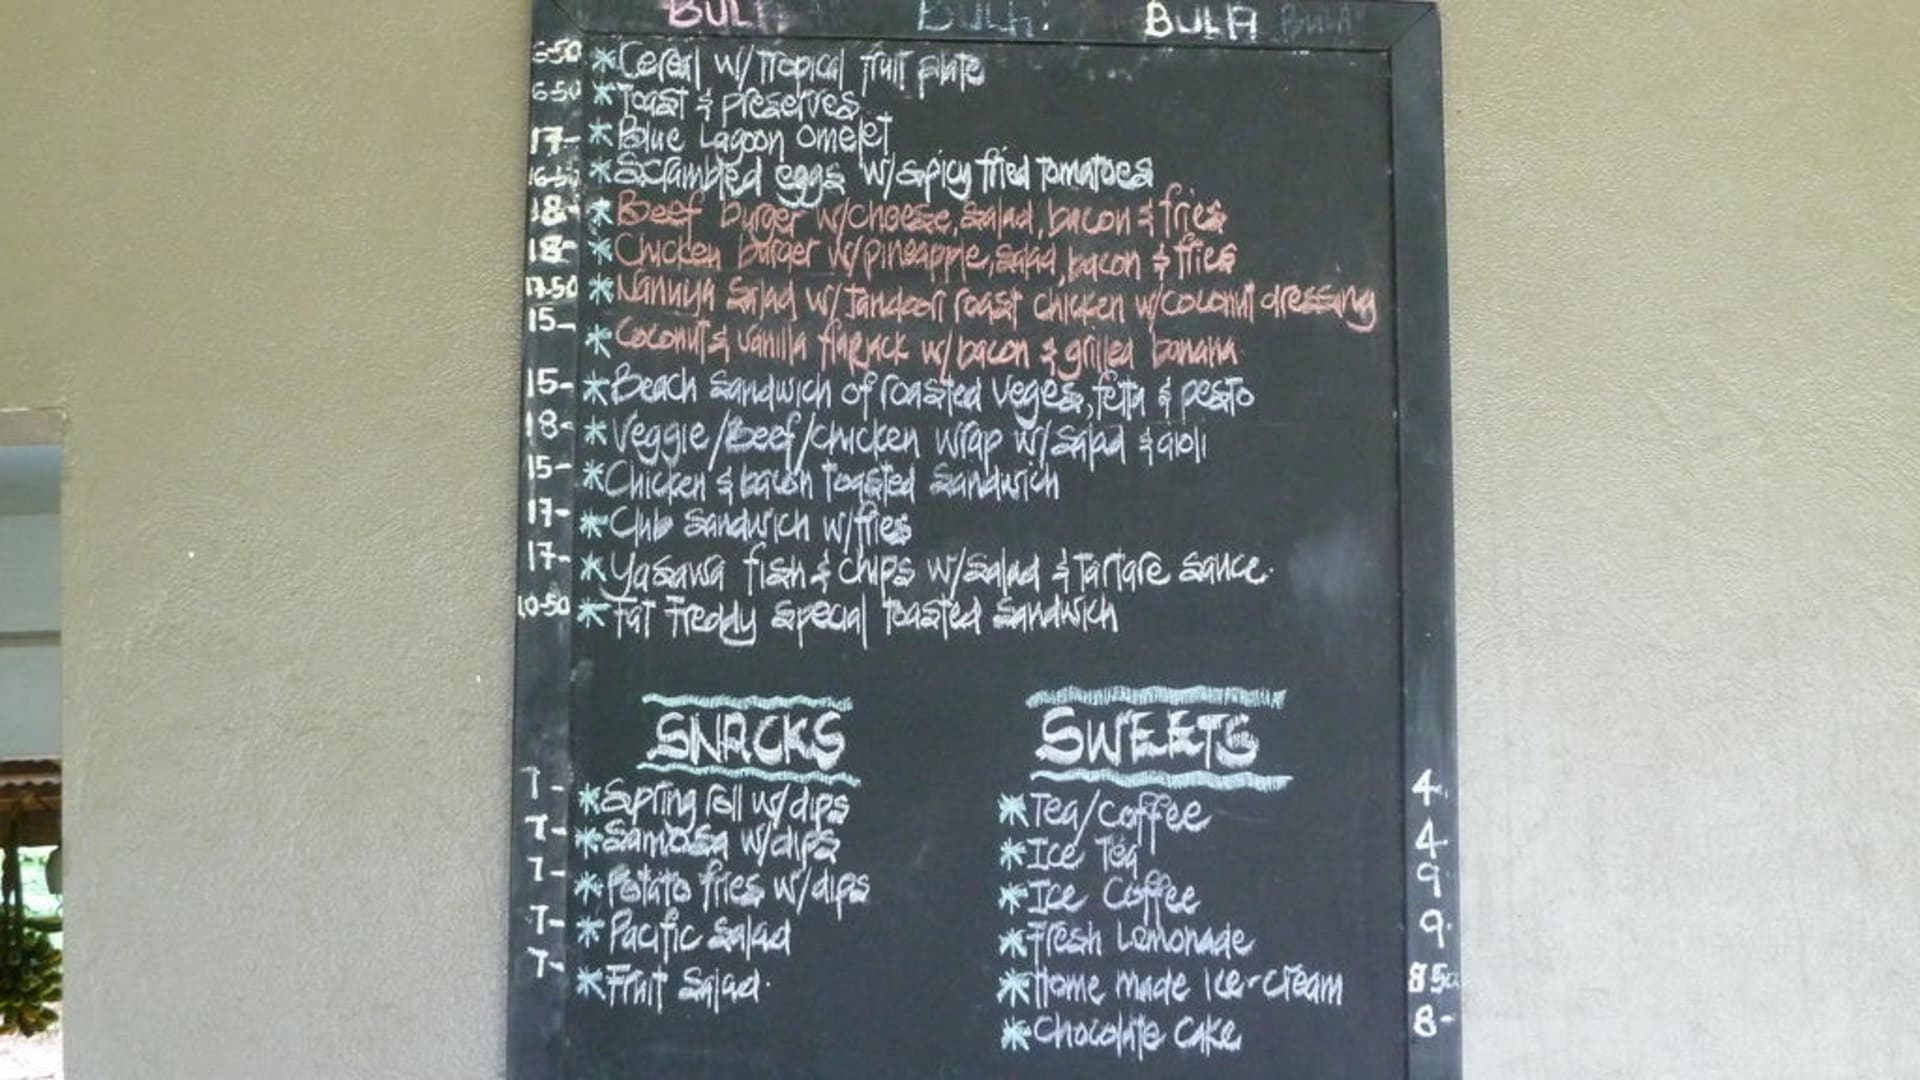 BULA BULA! BULA BULA
6-50 *Cereal w/Tropical fruit plate
6-50 *Toast & preserves
17- *Blue Lagoon omelet
16-50 *Scrambled eggs w/spicy fried tomatoes
18- *Beef burger w/cheese, salad, bacon & fries
18- *Chicken burger w/pineapple, salad, bacon & fries
17-50 *Nanuya Salad w/Tandoori roast chicken w/coconut dressing
15- *Coconut & vanilla flapjack w/bacon & grilled banana
15- *Beach Sandwich of roasted veges, fetta & pesto
18- *Veggie/Beef/chicken wrap w/salad & aioli
15- *Chicken & bacon toasted sandwich
17- *Club Sandwich w/fries
17- *Yasawa fish & chips w/salad & Tartare sauce.
10-50 *Fat Freddy special toasted sandwich
SNACKS
7- *Spring roll w/dips
7- *Samosa w/dips
7- *Potato fries w/dips
7- *Pacific Salad
7- *Fruit Salad.
SWEETS
*Tea/coffee 4.
*Ice Tea 4.
*Ice Coffee 9
*Fresh Lemonade 9.
*Home made ice-cream 850
*Chocolate cake 8-